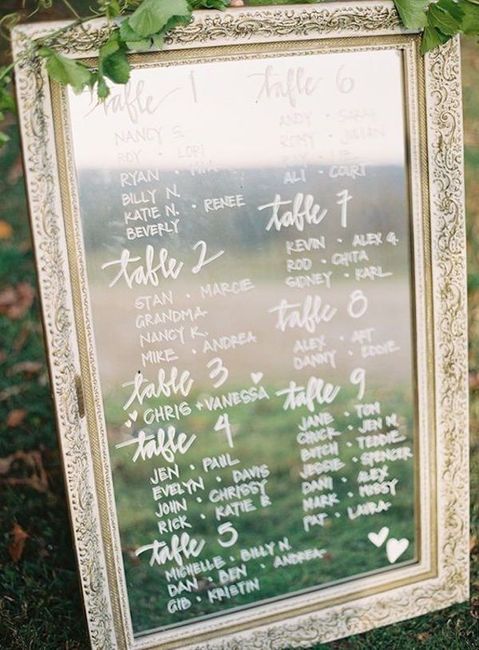 table 1
NANCY S.
ROY · LORI
RYAN
BILLY N.
KATIE N. · RENEE
BEVERLY
table 2
STAN · MARCIE
GRANDMA
NANCY K.
MIKE · ANDREA
table 3
CHRIS + VANESSA
table 4
JEN · PAUL
EVELYN · DAVIS
JOHN · CHRISSY
RICK · KATIE B
table 5
MICHELLE · BILLY N.
DAN · BEN · ANDREA
GIB · KRISTIN
table 6
ANDY · SARAH
ROMY · JULIAN
ALI · COURT
table 7
KEVIN · ALEX G.
ROD · CHITA
SIDNEY · KARL
table 8
ALEX · ART
DANNY · EDDIE
table 9
JANE · TOM
CHUCK · JEN M.
BUTCH · TEDDIE
JESSIE · SPENCER
DANI · ALEX
MARK · MISSY
PAT · LAURA